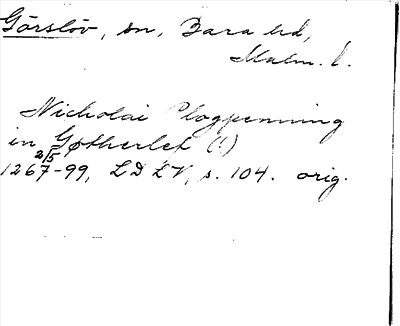 Görslöv, sn, Bara hd,
Malm. l.
Nicholai Plogpenning
in Gøtherlef (!)
2/5
1267-99, LDLV, s. 104. orig.